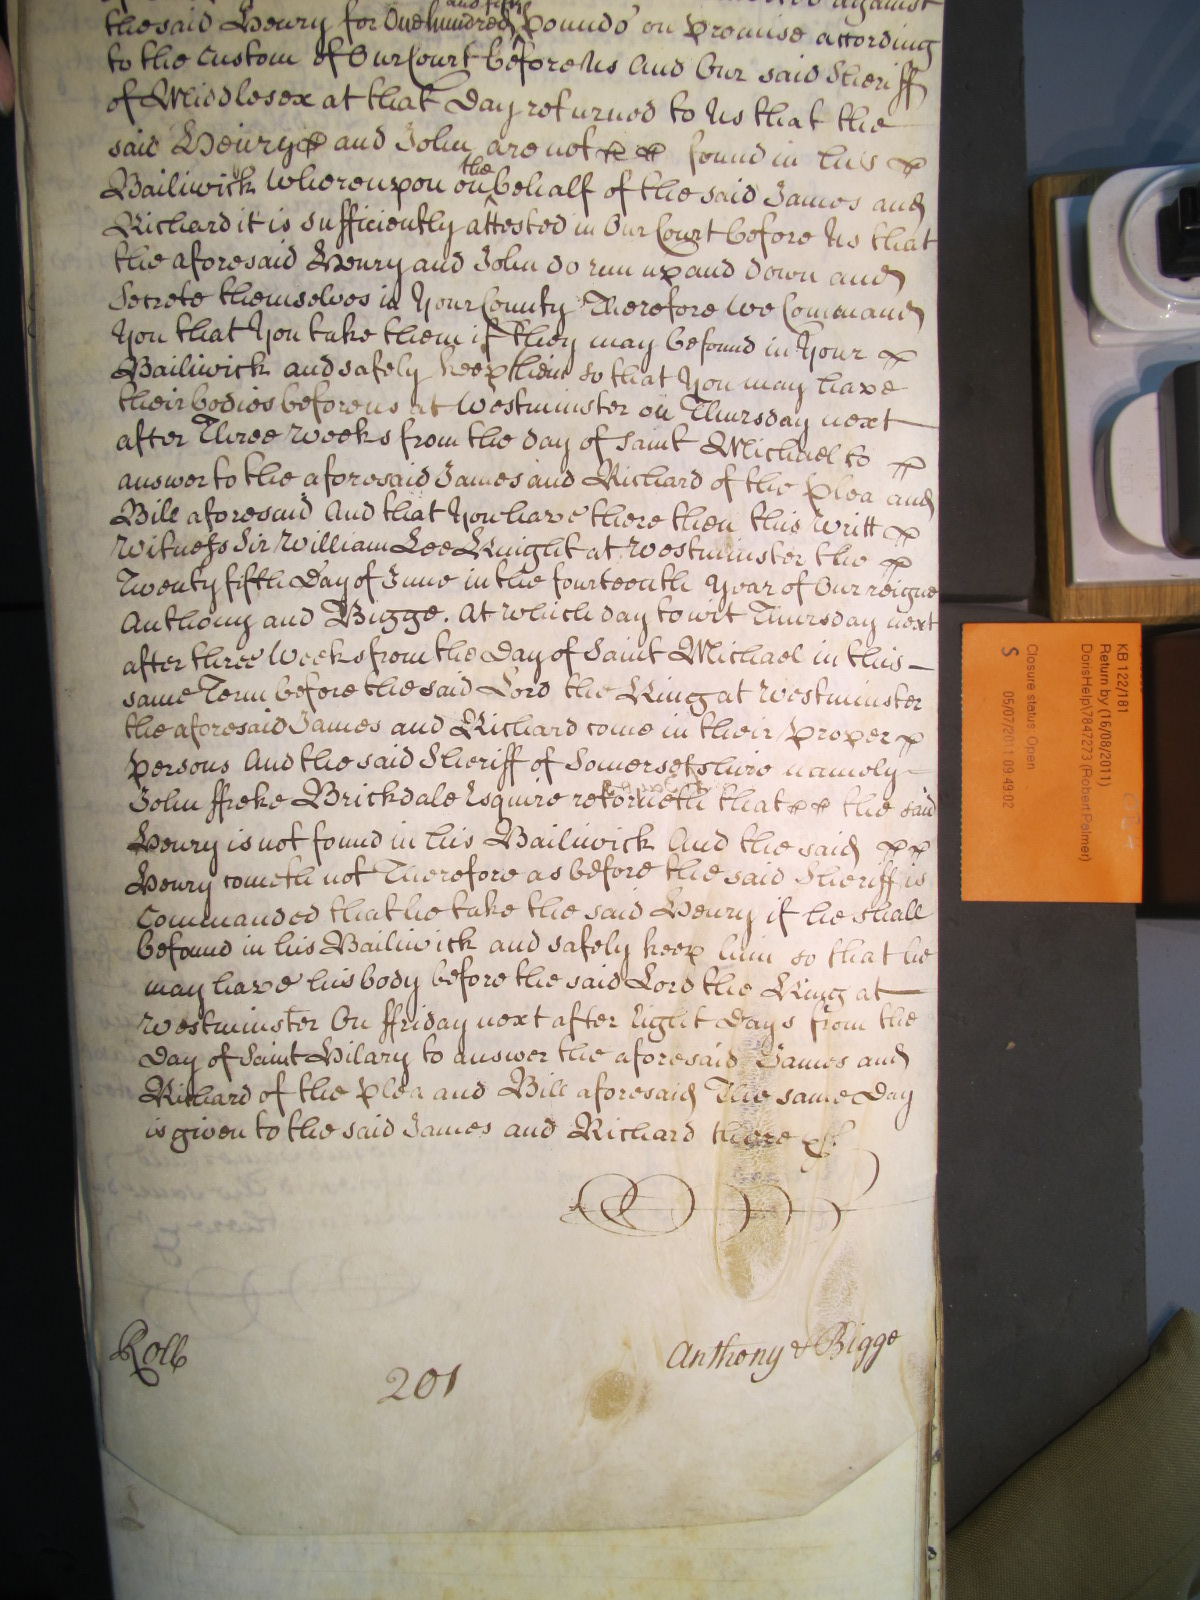 against
and fifty
the said Henry for One hundred ^ pounds on promise according
to the Custom of Our Court before Us And Our said Sheriff
of Middlesex at that Day returned to Us that the
said Henry and John are not found in his
the
Bailiwick Whereupon on ^ behalf of the said James and
Richard it is sufficiently attested in Our Court before Us that
the aforesaid Henry and John do run up and down and
Secrete themselves in Your County Therefore We Command
You that You take them if they may be found in Your
Bailiwick and safely keep them so that You may have
their bodies before us at Westminster on Thursday next
after Three Weeks from the day of Saint Michael to
answer to the aforesaid James and Richard of the plea and
Bill aforesaid And that You have there then this Writt
Witness Sir William Lee Knight at Westminster the
Twenty fifth Day of June in the fourteenth Year of Our reigne
Anthony and Bigge. At which day to wit Thursday next
after three Weeks from the Day of Saint Michael in this
same Term before the said Lord the King at Westminster
the aforesaid James and Richard come in their proper
persons And the said Sheriff of Somersetshire namely
John ffreke Brickdale Esquire returneth that the said
Henry is not found in his Bailiwick And the said
Henry cometh not Therefore as before the said Sheriff is
Commanded that he take the said Henry if he shall
be found in his Bailiwick and safely keep him so that he
may have his body before the said Lord the King at
Westminster On ffriday next after Eight Days from the
Day of Saint Hilary to answer the aforesaid James and
Richard of the plea and Bill aforesaid The same Day
is given to the said James and Richard there
Roll
201
Anthony & Bigge
KB 122/181
Return by (16/08/2011)
DorisHelp\7847273 (Robert Palmer)
Closure status: Open
S 05/07/2011 09:49:02